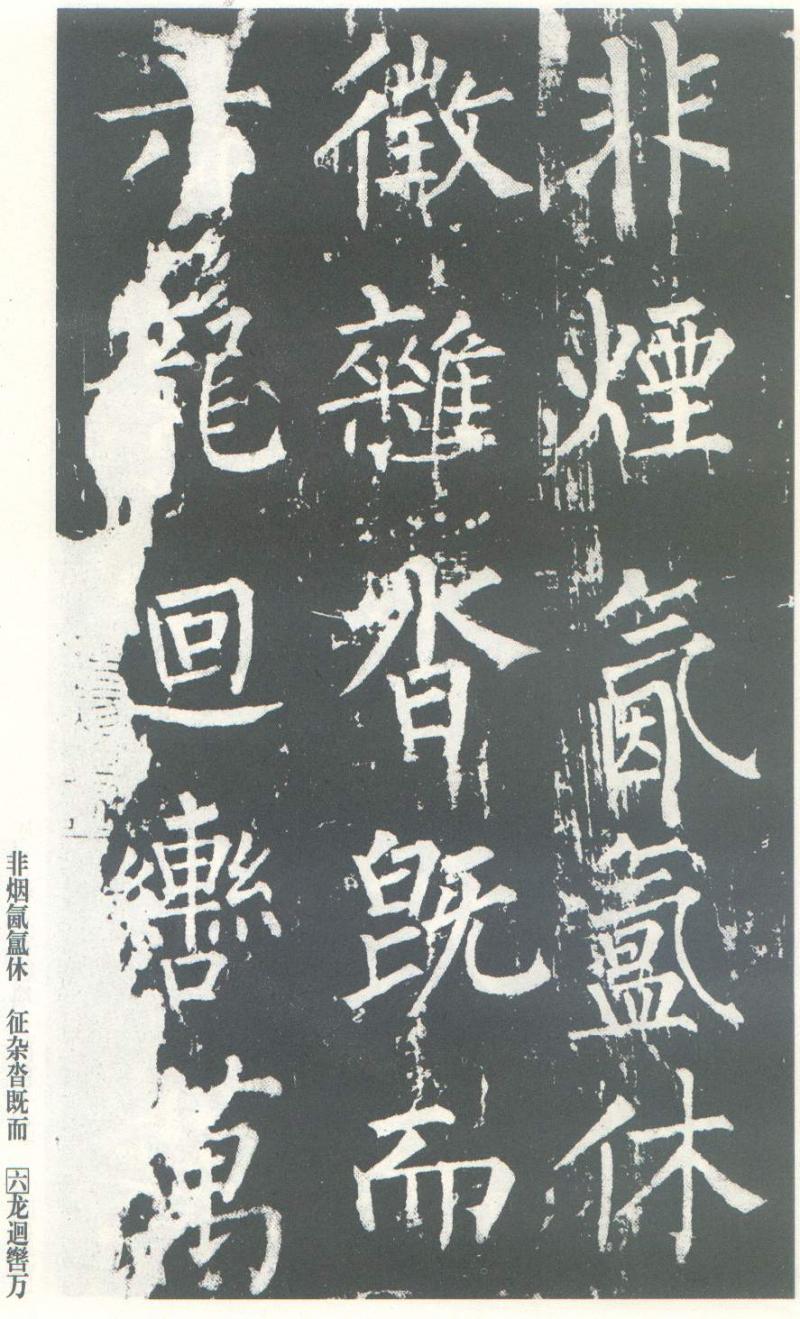 非煙氤氳休
徵雜沓既而
六龍迴轡萬
非烟氤氲休　征杂沓既而　六龙迴辔万